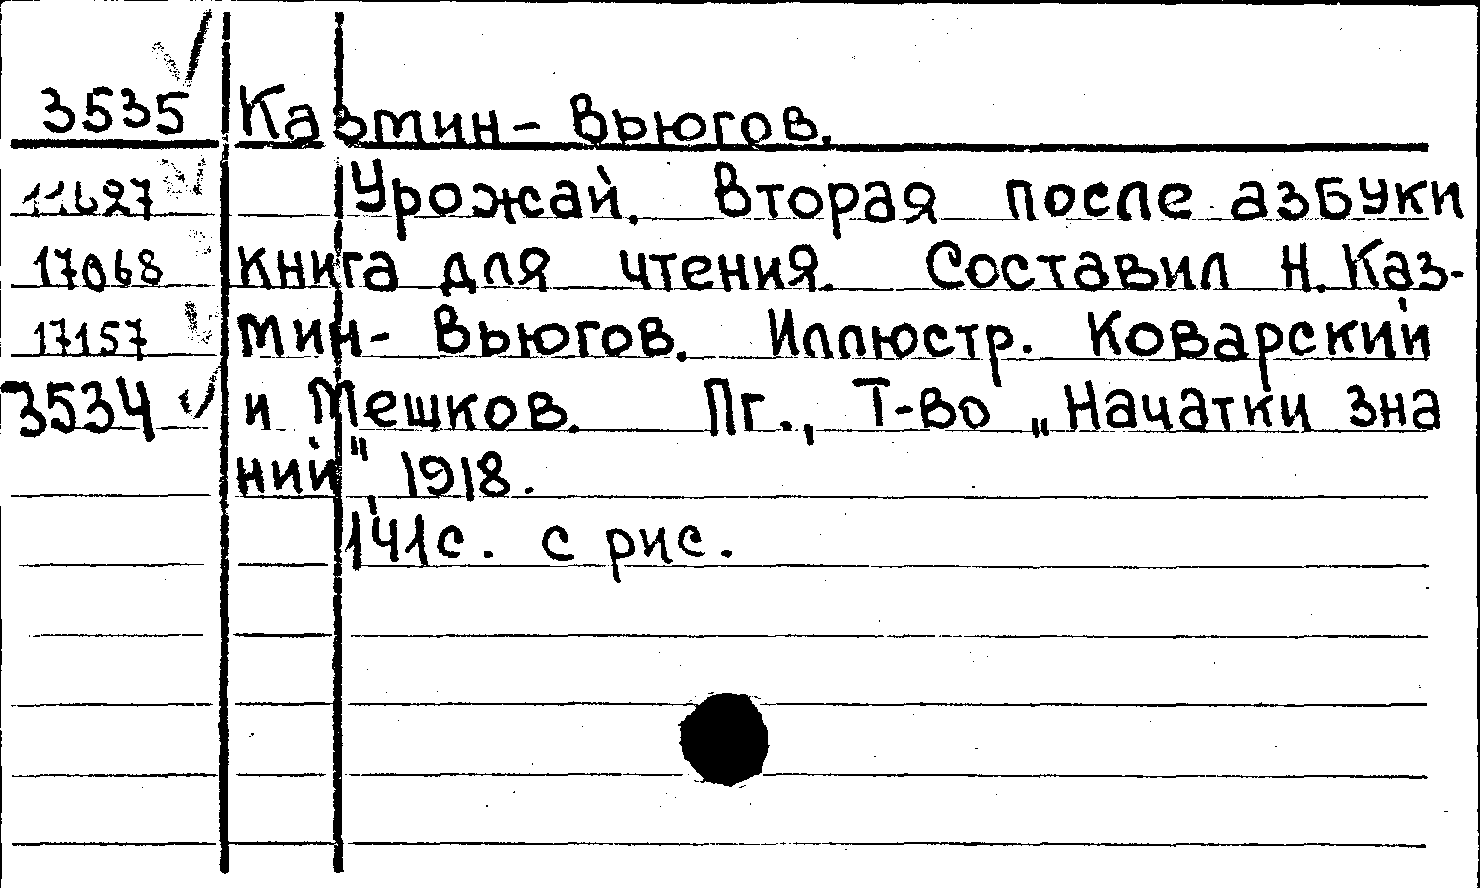 3535 Казмин-Вьюгов.
11627 Урожай. Вторая после азбуки
17068 книга для чтения. Составил Н. Каз-
17157 мин-Вьюгов. Иллюстр. Коварский
3534 и Мешков. Пг., Т-во „Начатки зна
ний", 1918.
141с. с рис.